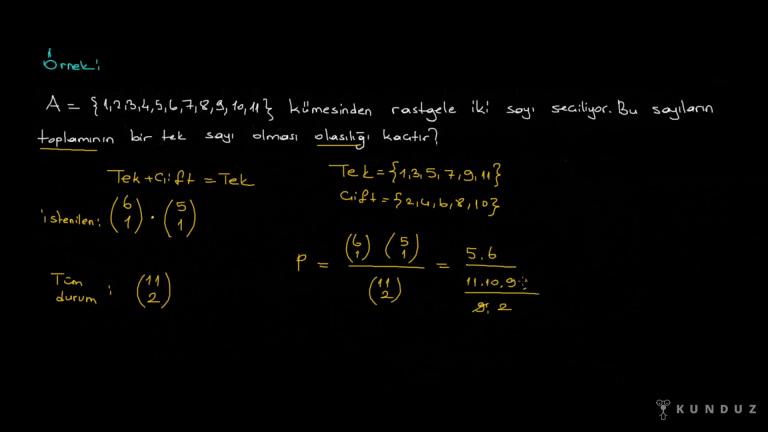 Örnek:
A = {1,2,3,4,5,6,7,8,9,10,11} kümesinden rastgele iki sayı seçiliyor. Bu sayıların
toplamının bir tek sayı olması olasılığı kaçtır?
Tek+Çift = Tek
Tek = {1,3,5,7,9,11}
Çift = {2,4,6,8,10}
istenilen: (6 1) · (5 1)
Tüm durum : (11 2)
P = (6 1) (5 1) / (11 2) = 5.6 / 11.10.9 / 9. 2
KUNDUZ